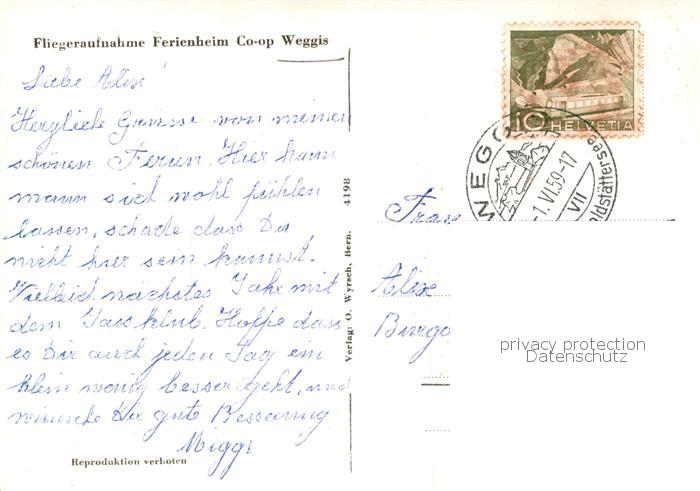 Fliegeraufnahme Ferienheim Co-op Weggis
Liebe Alix!
Herzliche Grüsse von meinen
schönen Ferien. Hier kann
mann sich wohl fühlen
lassen, schade dass Du
nicht hier sein kannst.
Vielleich nächstes Jahr mit
dem Jassklub. Hoffe dass
es Dir auch jeden Tag ein
klein wenig besser geht, und
wünsche Dir gute Besserung
Miggi
Reproduktion verboten
Verlag: O. Wyrsch, Bern. 4198
10 HELVETIA
WEGG
-1.VI.59-17
VII
ldstättersee
Frau
Alix
privacy protection
Datenschutz